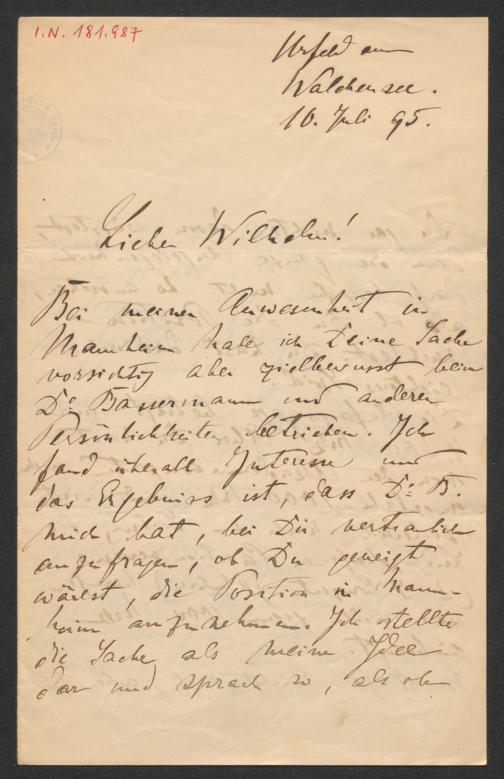 I.N. 181.987
Urfeld am
Walchensee.
10. Juli 95.
Lieber Wilhelm!
Bei meiner Anwesenheit in
Mannheim habe ich Deine Sache
vorsichtig aber zielbewusst beim
Dr. Bassermann und anderen
Persönlichkeiten betrieben. Ich
fand überall Interesse und
das Ergebniss ist, dass Dr. B.
mich bat, bei Dir vertraulich
anzufragen, ob Du geneigt
wärest, die Position in Mann-
heim anzunehmen. Ich stellte
die Sache als meine Idee
dar und sprach so, als ob